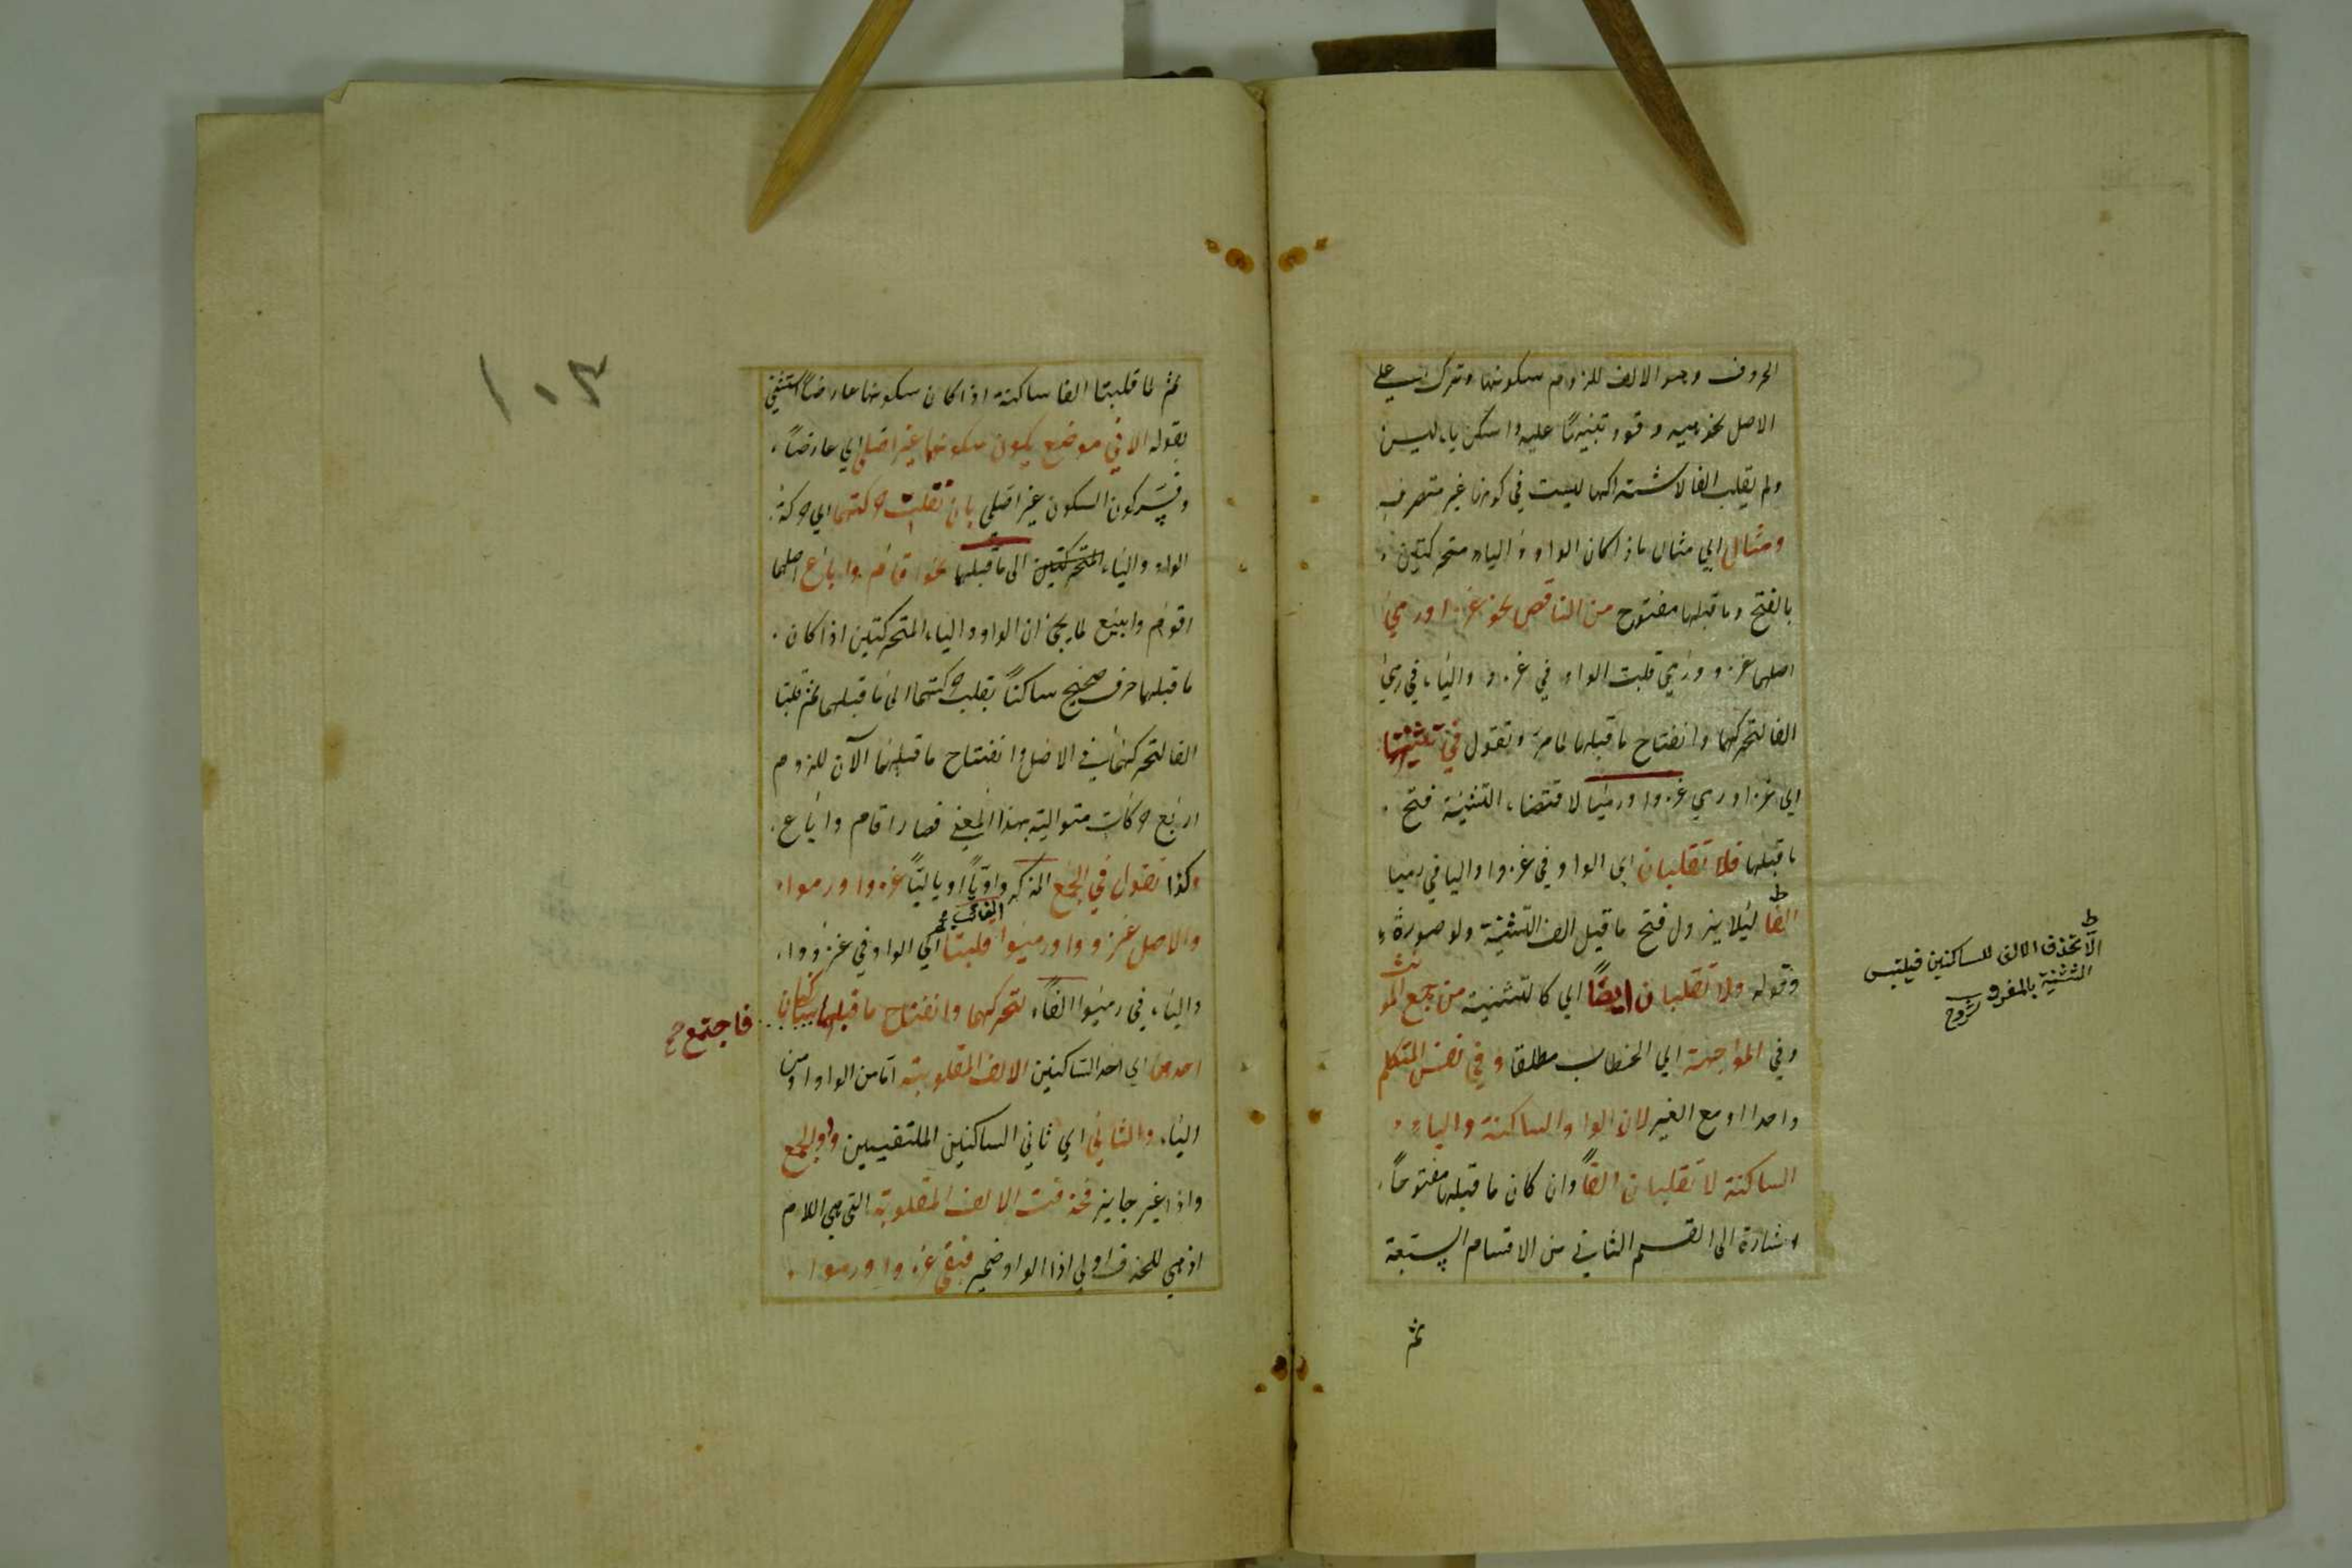 الحروف وهو الالف للزوم سكونها وترك على
الاصل نحو ميه وقود تنبيهًا عليه واسكن ياء ليس
ولم يقلب الفا لاشتراكها لليت في كونها غير متصرف
ومثال اي مثال ما اذا كان الواو والياء متحركتين
بالفتح وما قبلها مفتوح من الناقص نحو غزا ورمى
اصلهما غزو ورمي قلبت الواو في غزو والياء في رمي
الفا لتحركهما وانفتاح ما قبلهما لما مر وتقول في تثنيتهما
اي غزا ورمى غزوا ورميا لاقتضاء التثنية فتح
ما قبلها فلا تقلبان اي الواو في غزوا واليا في رميا
الفا ليلا يزول فتح ما قبل الف التثنية ولو صورة
وقوله ولا تقلبان ايضًا اي كالتثنية من جمع المونث
وفي المواجهة اي الخطاب مطلقا وفي نفس المتكلم
واحدا او مع الغير لان الواو الساكنة والياء
الساكنة لا تقلبان الفًا وان كان ما قبلها مفتوحًا
اشارة الى القسم الثاني من الاقسام السبعة
ثم
ط
الا تحذف الالف للساكنين فيلتبس
التثنية بالمفرد
شروح
١٠٣
ثم لما قلبتا الفا ساكنة اذا كان سكونها عارضًا استثنى
بقوله الا في موضع يكون سكونهما غير اصلي اي عارضًا
وفسّر كون السكون غير اصلي بان نقلت حركتهما اي حركة
الواو والياء المتحركتين الى ما قبلهما نحو اقام واباع اصلهما
اقوم وابيع لما يجئ ان الواو والياء المتحركتين اذا كان
ما قبلهما حرف صحيح ساكنًا نقلت حركتهما الى ما قبلهما ثم قلبتا
الفا لتحركهما في الاصل وانفتاح ما قبلهما الآن للزوم
اربع حركات متوالية بهذا المعنى فصار اقام واباع
وكذا تقول في الجمع المذكر واويًا او يائيًا غزوا ورموا
الغائب صح
والاصل غزووا ورميوا قلبتا اي الواو في غزووا
والياء في رميوا الفًا لتحركهما وانفتاح ما قبلهما ساكنان
فاجتمع صح
احدهما اي احد الساكنين الالف المقلوبة اما من الواو او من
الياء والثاني اي ثاني الساكنين الملتقيين واو الجمع
واذا غير جايز فحذفت الالف المقلوبة التي هي اللام
اذ هي للحذف اولى اذا الواو ضمير فبقي غزوا ورموا